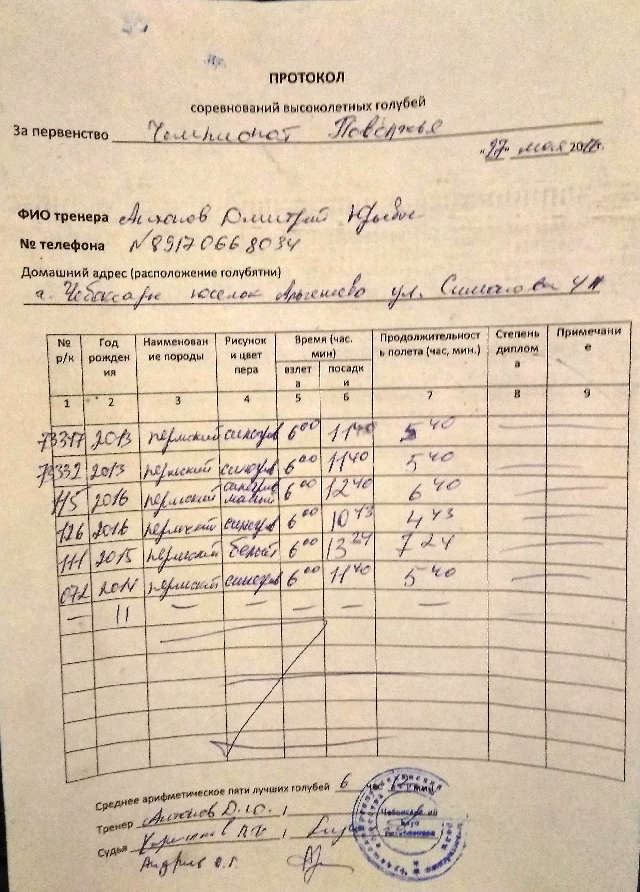 ПРОТОКОЛ
соревнований высоколетных голубей
За первенство Чемпионат Поволжья
"27" мая 20
ФИО тренера Дмитрий
№ телефона 89170668034
Домашний адрес (расположение голубятни)
г. Чебоксары поселок Альгешево ул.
№ р/к Год рождения Наименование породы Рисунок и цвет пера Время (час. мин) взлета посадки Продолжительность полета (час, мин.) Степень диплома Примечание
1 2 3 4 5 6 7 8 9
73317 2013 пермский 6 00 11 40 5 40
73332 2013 пермский 6 00 11 40 5 40
115 2016 пермский 6 00 12 40 6 40
126 2016 пермский 6 00 10 43 4 43
111 2015 пермский белый 6 00 13 24 7 24
072 2014 пермский 6 00 11 40 5 40
— 11 — — — — — —
Среднее арифметическое пяти лучших голубей 6 час мин
Тренер Д.Ю.
Судья